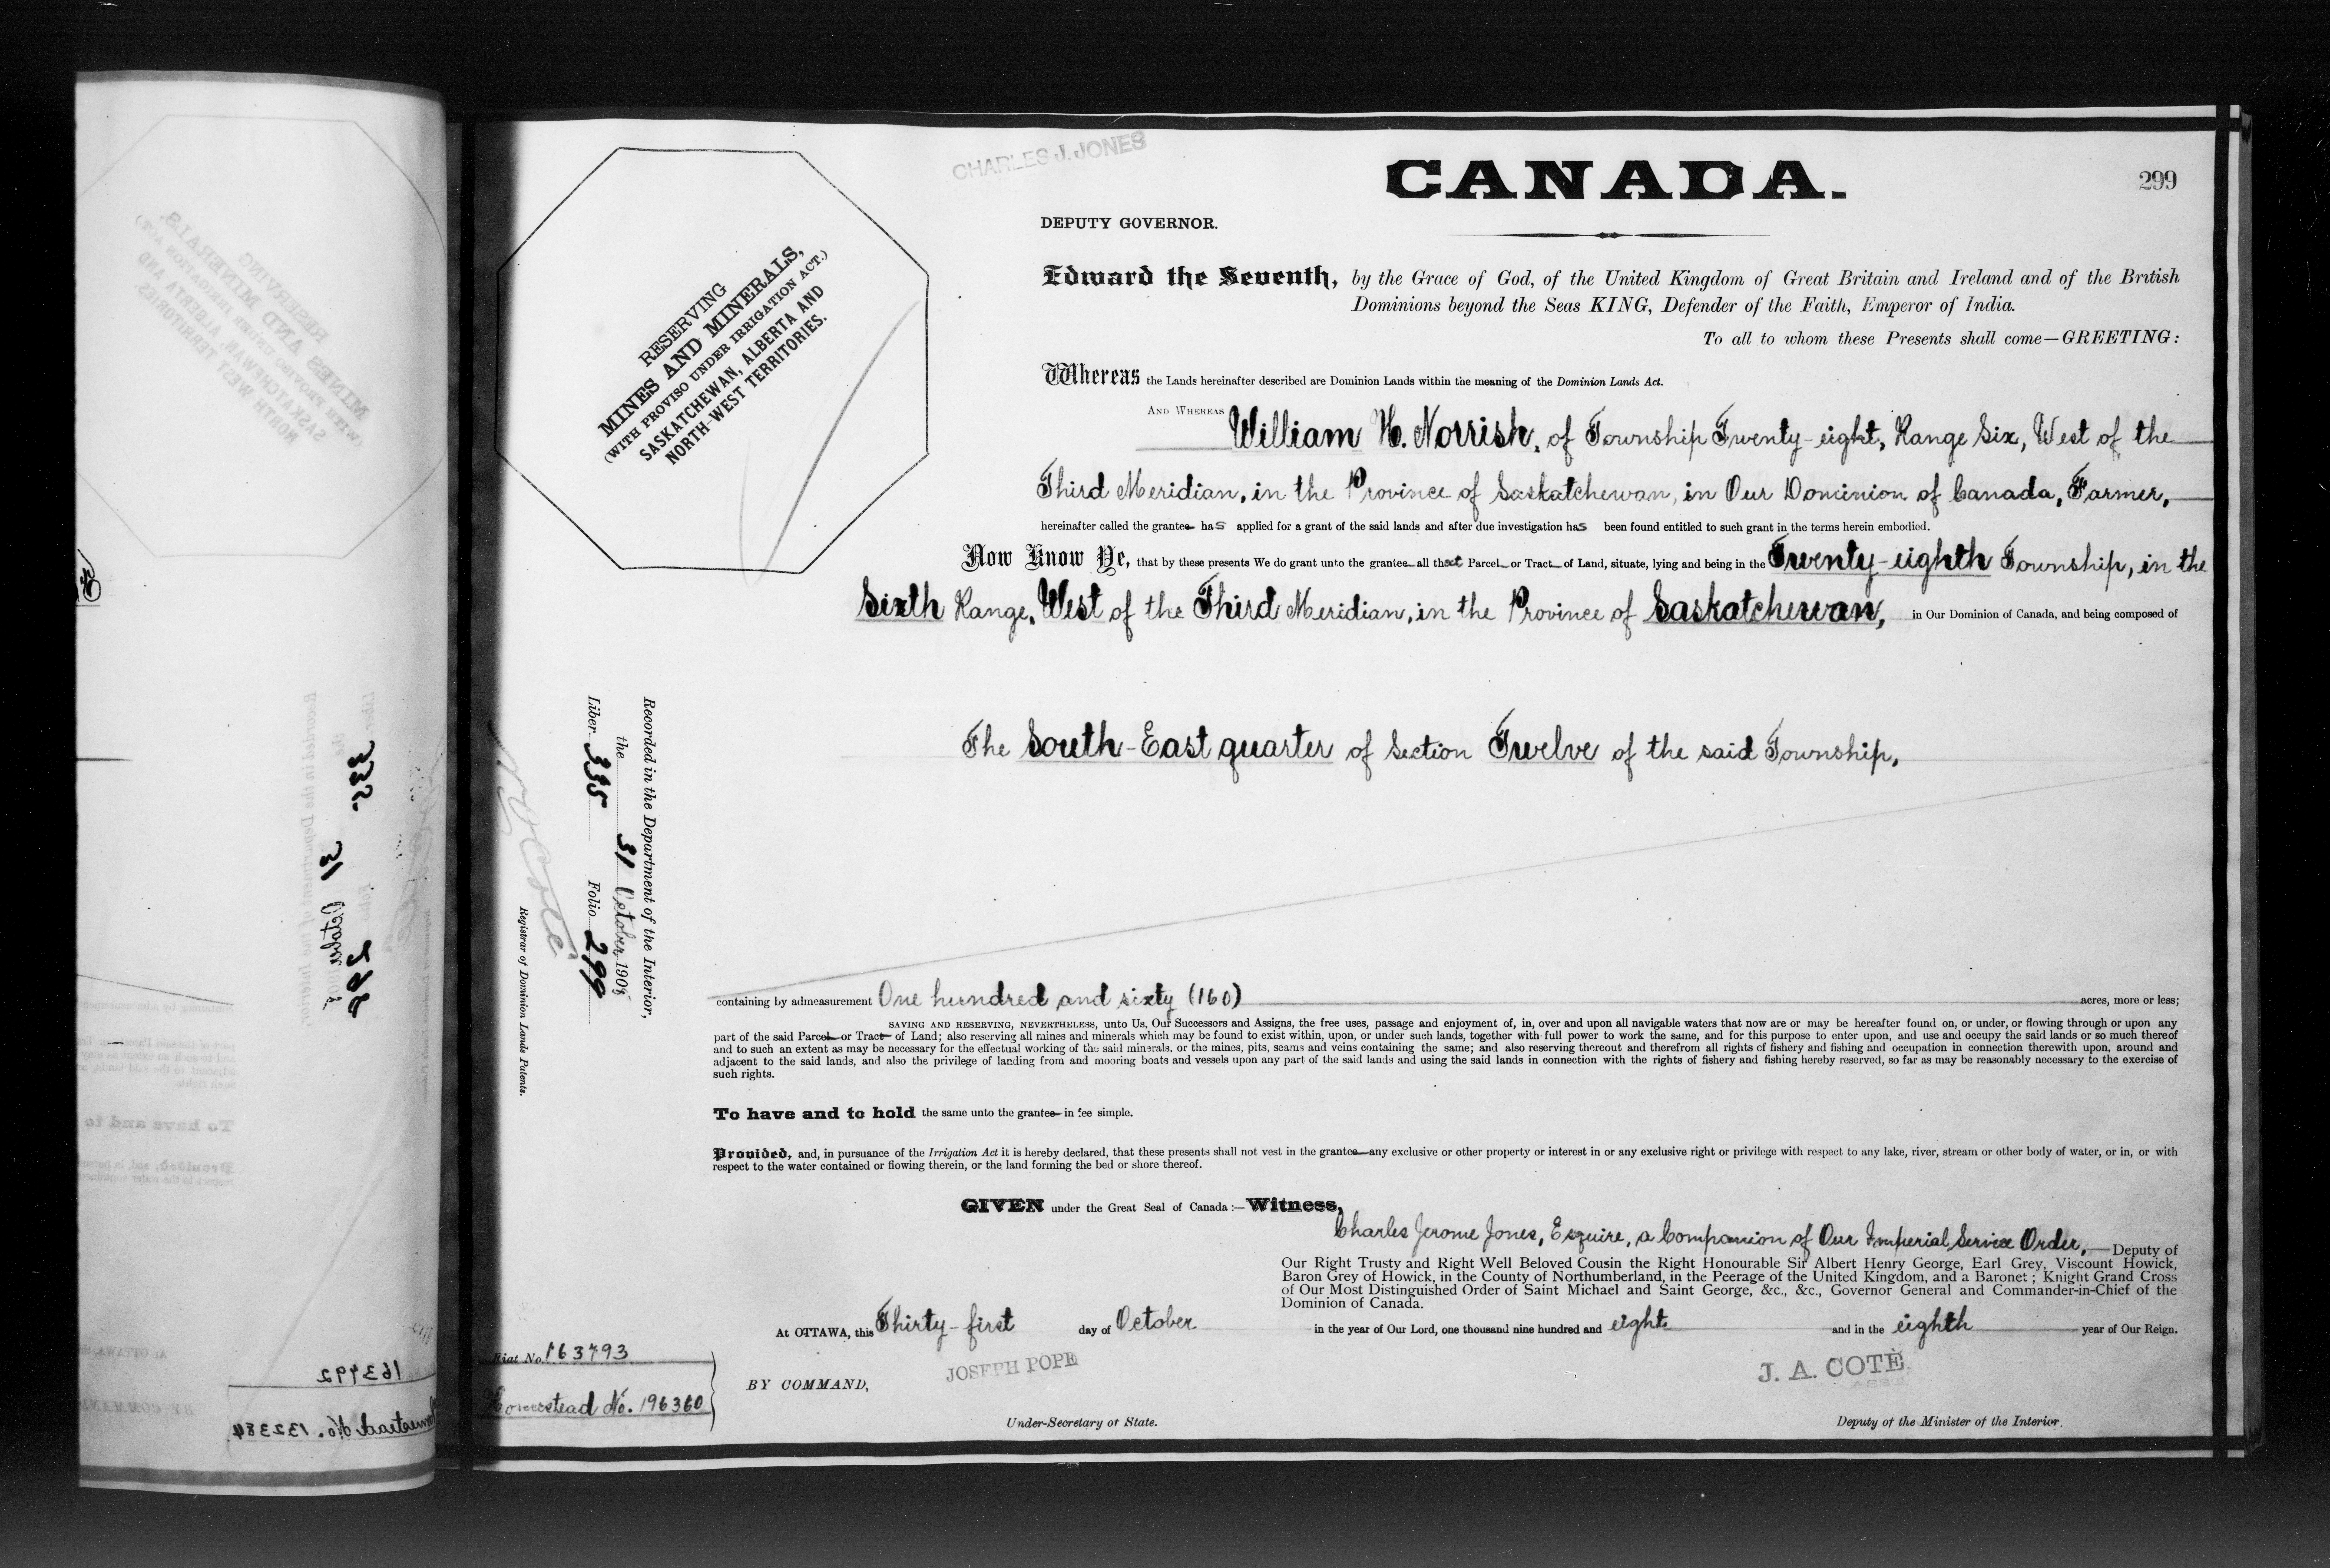 CHARLES J. JONES
CANADA.
299
DEPUTY GOVERNOR.
RESERVING
MINES AND MINERALS,
(WITH PROVISO UNDER IRRIGATION ACT.)
SASKATCHEWAN, ALBERTA AND
NORTH-WEST TERRITORIES.
Edward the Seventh, by the Grace of God, of the United Kingdom of Great Britain and Ireland and of the British
Dominions beyond the Seas KING, Defender of the Faith, Emperor of India.
To all to whom these Presents shall come—GREETING:
Whereas the Lands hereinafter described are Dominion Lands within the meaning of the Dominion Lands Act.
AND WHEREAS William H. Norrish, of Township Twenty-eight, Range Six, West of the
Third Meridian, in the Province of Saskatchewan, in Our Dominion of Canada, Farmer,
hereinafter called the grantee has applied for a grant of the said lands and after due investigation has been found entitled to such grant in the terms herein embodied.
Now Know Ye, that by these presents We do grant unto the grantee all that Parcel or Tract of Land, situate, lying and being in the Twenty-eighth Township, in the
Sixth Range, West of the Third Meridian, in the Province of Saskatchewan, in Our Dominion of Canada, and being composed of
The South-East quarter of Section Twelve of the said Township,
Recorded in the Department of the Interior,
the 31 October, 1908
Liber 335 Folio 299
N. O. Coté
Registrar of Dominion Lands Patents.
containing by admeasurement One hundred and sixty (160) acres, more or less;
SAVING AND RESERVING, NEVERTHELESS, unto Us, Our Successors and Assigns, the free uses, passage and enjoyment of, in, over and upon all navigable waters that now are or may be hereafter found on, or under, or flowing through or upon any
part of the said Parcel or Tract of Land; also reserving all mines and minerals which may be found to exist within, upon, or under such lands, together with full power to work the same, and for this purpose to enter upon, and use and occupy the said lands or so much thereof
and to such an extent as may be necessary for the effectual working of the said minerals, or the mines, pits, seams and veins containing the same; and also reserving thereout and therefrom all rights of fishery and fishing and occupation in connection therewith upon, around and
adjacent to the said lands, and also the privilege of landing from and mooring boats and vessels upon any part of the said lands and using the said lands in connection with the rights of fishery and fishing hereby reserved, so far as may be reasonably necessary to the exercise of
such rights.
To have and to hold the same unto the grantee in fee simple.
Provided, and, in pursuance of the Irrigation Act it is hereby declared, that these presents shall not vest in the grantee any exclusive or other property or interest in or any exclusive right or privilege with respect to any lake, river, stream or other body of water, or in, or with
respect to the water contained or flowing therein, or the land forming the bed or shore thereof.
GIVEN under the Great Seal of Canada:—Witness,
Charles Jerome Jones, Esquire, a Companion of Our Imperial Service Order, Deputy of
Our Right Trusty and Right Well Beloved Cousin the Right Honourable Sir Albert Henry George, Earl Grey, Viscount Howick,
Baron Grey of Howick, in the County of Northumberland, in the Peerage of the United Kingdom, and a Baronet; Knight Grand Cross
of Our Most Distinguished Order of Saint Michael and Saint George, &c., &c., Governor General and Commander-in-Chief of the
Dominion of Canada.
At OTTAWA, this Thirty-first day of October in the year of Our Lord, one thousand nine hundred and eight and in the eighth year of Our Reign.
Fiat No. 163793
Homestead No. 196360
BY COMMAND,
JOSEPH POPE
Under-Secretary of State.
J. A. COTÈ
Deputy of the Minister of the Interior.
163792
Homestead No. 132384